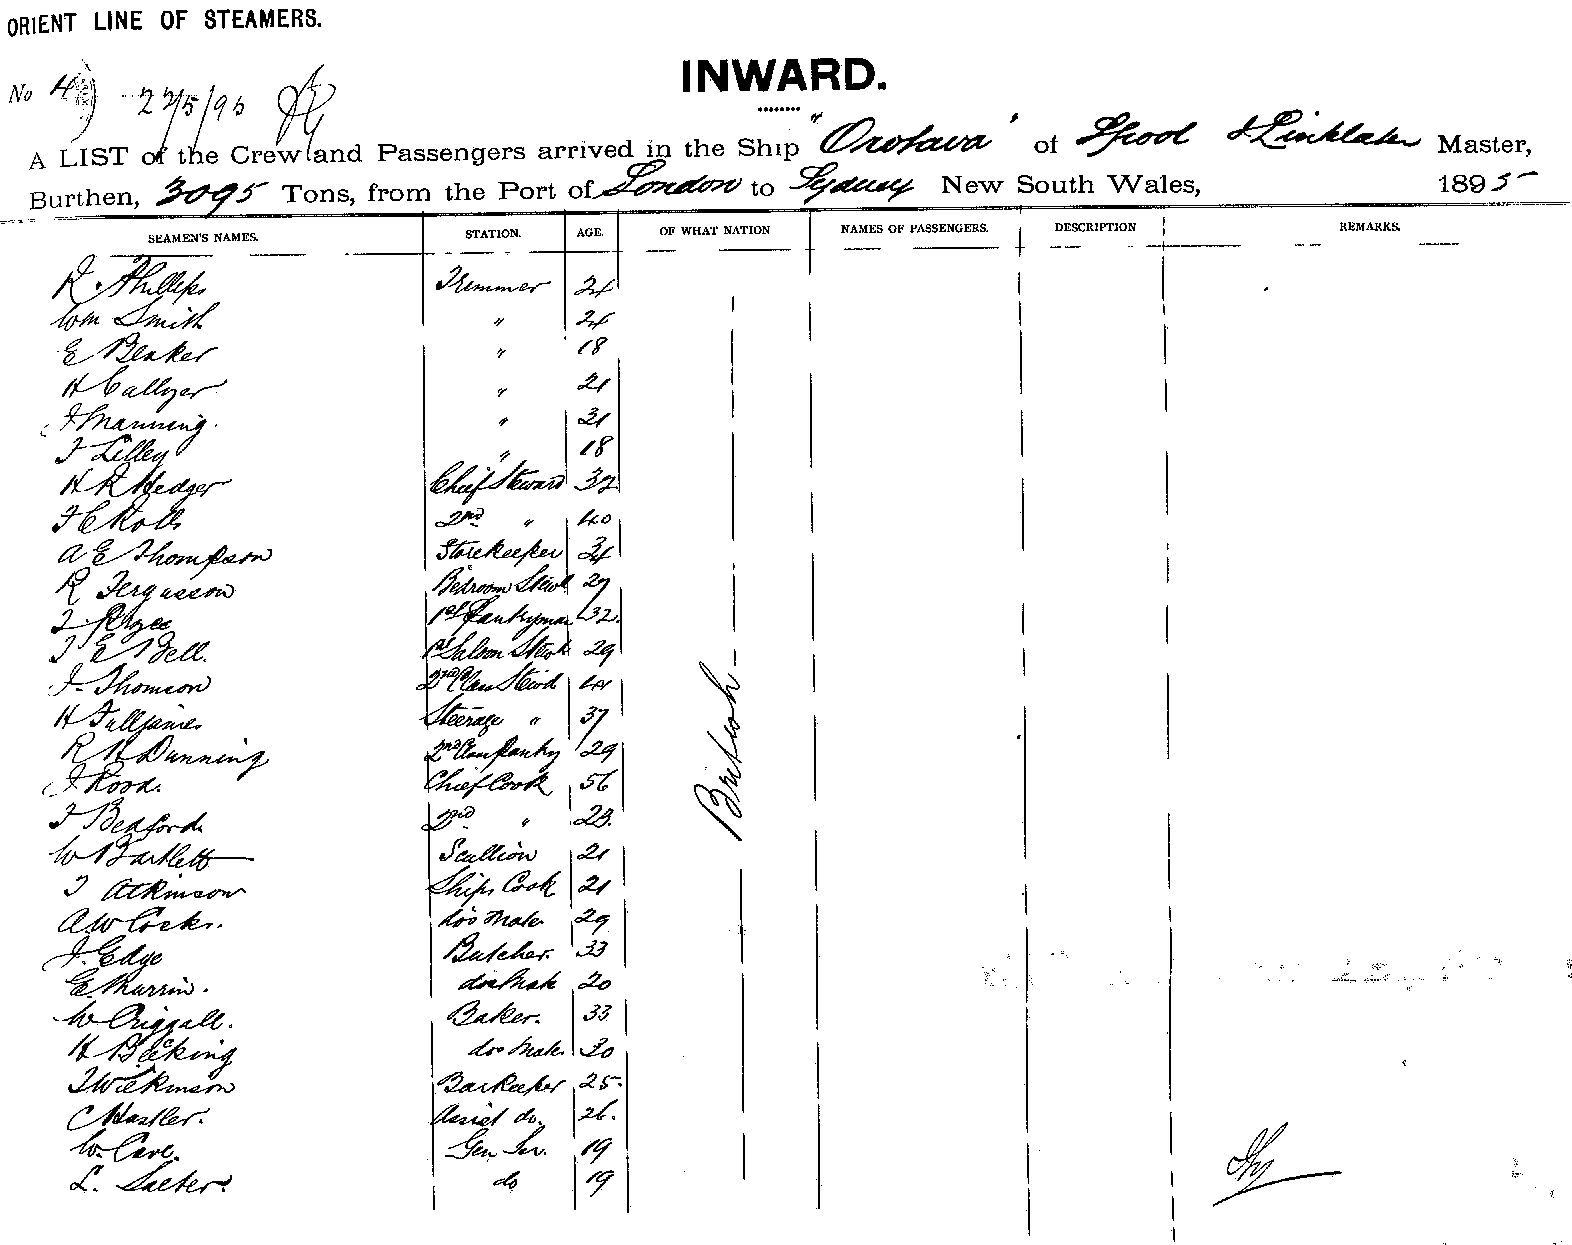 ORIENT LINE OF STEAMERS.
INWARD.
No 4 22/5/95
A LIST of the Crew and Passengers arrived in the Ship "Orotava" of L'pool J Linklater Master,
Burthen, 3095 Tons, from the Port of London to Sydney New South Wales, 1895
SEAMEN'S NAMES. STATION. AGE. OF WHAT NATION NAMES OF PASSENGERS. DESCRIPTION REMARKS.
R Phillips Trimmer 24
Wm Smith " 24
E Beaker " 18
H Callyer " 21
J Manning. " 31
J Lilley " 18
H R Hedger Chief Steward 32
J C Rolls 2nd " 40
A E Thompson Storekeeper 34
R Fergusson Bedroom Stewd 27
1st Pantryman 32.
J E Bell. 1st Saloon Stewd 29
J. Thomson 2nd Class Stewd 41
H Fulljames Steerage " 37
R H Dunning 2nd Class Pantry 29
J Rood. Chief Cook 56
J Bedford. 2nd " 23.
W Bartlett Scullion 21
J Atkinson Ships Cook 21
A W Cocks. do's Mate. 29
J. Edge Butcher. 33
E. Murrin. dos Mate 20
W Criggall. Baker. 33
H Becking dos Mate. 30
J Wilkinson Barkeeper 25.
C Hastler. Assist do. 26.
W. Cave. Gen Ser. 19
L. Salter. do 19
British